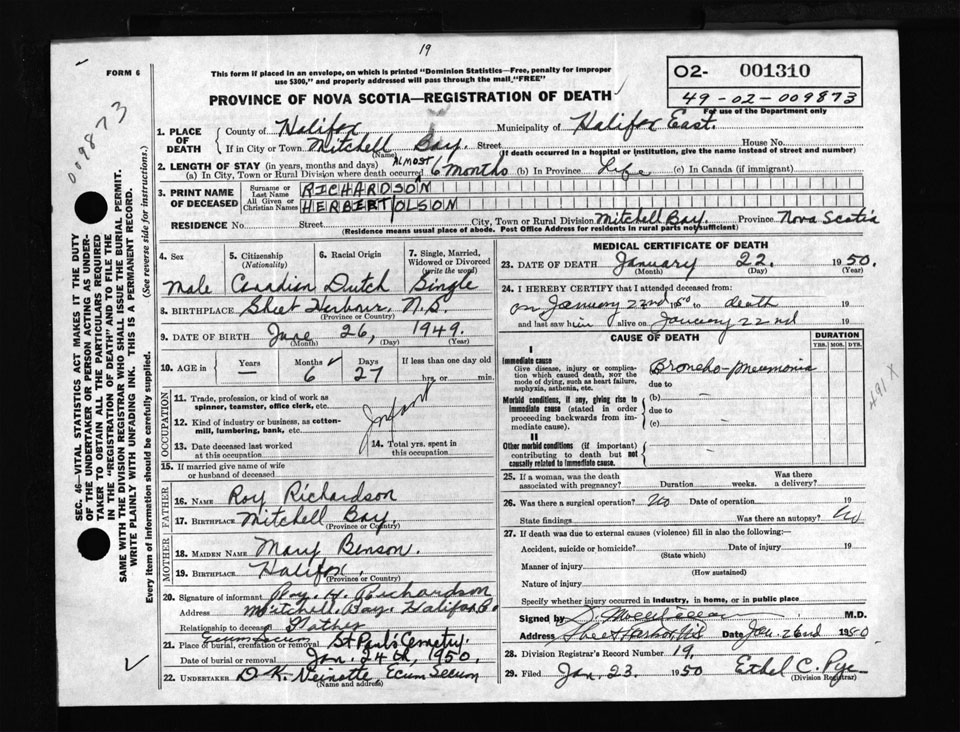 19
FORM 6
This form if placed in an envelope, on which is printed "Dominion Statistics—Free, penalty for improper
use $300," and properly addressed will pass through the mail "FREE"
O2- 001310
49-02-009873
For use of the Department only
PROVINCE OF NOVA SCOTIA—REGISTRATION OF DEATH
009873
SEC. 46—VITAL STATISTICS ACT MAKES IT THE DUTY
OF THE UNDERTAKER OR PERSON ACTING AS UNDER-
TAKER TO OBTAIN ALL THE PARTICULARS REQUIRED
IN THE "REGISTRATION OF DEATH" AND TO FILE THE
SAME WITH THE DIVISION REGISTRAR WHO SHALL ISSUE THE BURIAL PERMIT.
WRITE PLAINLY WITH UNFADING INK. THIS IS A PERMANENT RECORD.
Every item of information should be carefully supplied. (See reverse side for instructions.)
1. PLACE OF DEATH County of Halifax Municipality of Halifax East.
If in City or Town Mitchell Bay. Street House No.
(Name) (If death occurred in a hospital or institution, give the name instead of street and number)
2. LENGTH OF STAY (in years, months and days)
(a) In City, Town or Rural Division where death occurred ALMOST 6 Months (b) In Province Life (c) In Canada (if immigrant)
3. PRINT NAME OF DECEASED Surname or Last Name RICHARDSON
All Given or Christian Names HERBERT OLSON
RESIDENCE No. Street City, Town or Rural Division Mitchell Bay. Province Nova Scotia
(Residence means usual place of abode. Post Office Address for residents in rural parts not sufficient)
4. Sex 5. Citizenship (Nationality) 6. Racial Origin 7. Single, Married, Widowed or Divorced (write the word)
Male Canadian Dutch Single
8. BIRTHPLACE Sheet Harbour, N.S.
(Province or Country)
9. DATE OF BIRTH June 26, 1949.
(Month) (Day) (Year)
10. AGE IN Years — Months 6 Days 27 If less than one day old hrs. or min.
OCCUPATION
11. Trade, profession, or kind of work as
spinner, teamster, office clerk, etc.
Infant
12. Kind of industry or business, as cotton-
mill, lumbering, bank, etc.
13. Date deceased last worked
at this occupation
14. Total yrs. spent in
this occupation
15. If married give name of wife
or husband of deceased
FATHER
16. NAME Roy Richardson
17. BIRTHPLACE Mitchell Bay
(Province or Country)
MOTHER
18. MAIDEN NAME Mary Benson.
19. BIRTHPLACE Halifax.
(Province or Country)
20. Signature of informant Roy. H. Richardson
Address Mitchell Bay Halifax Co
Relationship to deceased Father
21. Place of burial, cremation or removal Ecum Secum St Paul's Cemetry.
Date of burial or removal Jan. 24th, 1950.
22. UNDERTAKER D. K. Veinotte, Ecum Secum
(Name and address)
MEDICAL CERTIFICATE OF DEATH
23. DATE OF DEATH January 22. 1950.
(Month) (Day) (Year)
24. I HEREBY CERTIFY that I attended deceased from:
on January 22nd 1950 to death 19
and last saw him alive on January 22nd 19
CAUSE OF DEATH
DURATION
YRS. MOS. DYS.
I
Immediate cause
Give disease, injury or complica-
tion which caused death, NOT the
mode of dying, such as heart failure,
asphyxia, asthenia, etc.
Broncho-pneumonia
due to
491 X
Morbid conditions, if any, giving rise to
immediate cause (stated in order
proceeding backwards from im-
mediate cause).
(b)
due to
(c)
II
Other morbid conditions (if important)
contributing to death but not
causally related to immediate cause.
25. If a woman, was the death
associated with pregnancy? Duration weeks. Was there a delivery?
26. Was there a surgical operation? No Date of operation 19
State findings Was there an autopsy? No
27. If death was due to external causes (violence) fill in also the following:
Accident, suicide or homicide? Date of injury 19
(State which)
Manner of injury
(How sustained)
Nature of injury
Specify whether injury occurred in industry, in home, or in public place
Signed by M.D.
Address Sheet Harbor, N.S. Date Jan. 22nd 1950.
28. Division Registrar's Record Number 19.
29. Filed Jan. 23 1950 Ethel C. Pye
(Division Registrar)